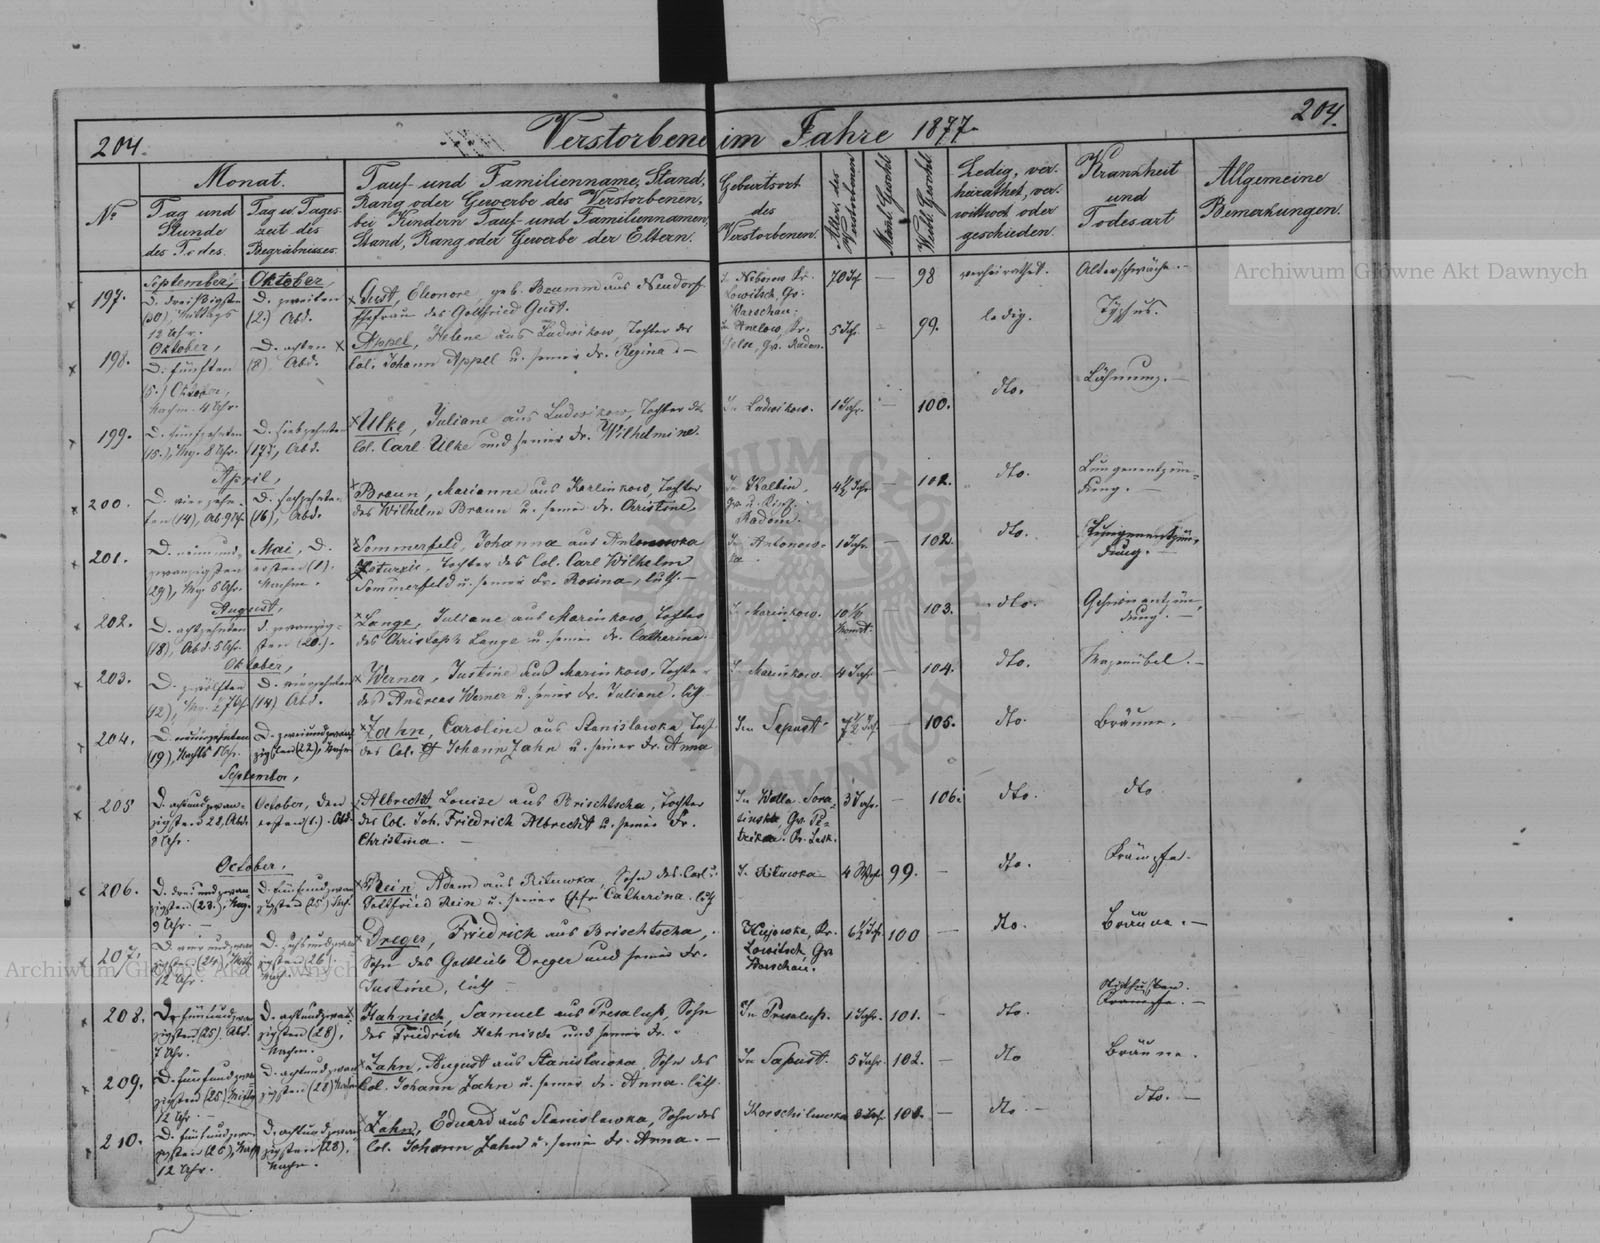 204.
Verstorbene im Jahre 1877.
204.
No
Monat.
Tag und
Stunde
des Todes.
Tag u. Tages-
zeit des
Begräbnisses.
Tauf und Familienname, Stand,
Rang oder Gewerbe des Verstorbenen,
bei Kindern Tauf und Familiennamen,
Stand, Rang oder Gewerbe der Eltern.
Geburtsort
des
Verstorbenen.
Alter des
Verstorbenen
Mänl. Geschl.
Weibl. Geschl.
Ledig, ver-
heirathet, ver-
wittwet oder
geschieden.
Krankheit
und
Todesart
Allgemeine
Bemerkungen.
197.
September,
D. dreißigsten
(30), Mittags
12 Uhr.
Oktober,
D. zweiten
(2.) Abd.
Gust, Eleonore, geb. Brumm aus Neudorf
Ehefrau des Gottfried Gust.
Nieborow Kr.
Lowitsch, Gv.
Warschau.
70 Jhr.
98
verheirathet.
Altersschwäche.
198.
Oktober,
D. fünften
(5.) October,
Nachm. 4 Uhr.
D. achten
(8) Abd.
Appel, Helene aus Ludwikow, Tochter des
Col. Johann Appel u. seiner Fr. Regina.
Gv. Radom.
5 Jhr.
99.
ledig.
Typhus.
199.
D. fünfzehnten
(15.), Mg. 8 Uhr.
D. siebzehnten
(17), Abd.
Ulke, Juliane aus Ludwikow, Tochter des
Col. Carl Ulke und seiner Fr. Wilhelmine.
In Ludwikow.
1 Jhr.
100.
dto.
Lähmung.
200.
April,
D. vierzehn-
ten (14), Ab. 9 Uhr
D. sechzehnten
(16), Abd.
Braun, Marianne aus Karlinkow, Tochter
des Wilhelm Braun u. seiner Fr. Christine,
In Kalbin,
Radom.
4½ Jhr.
102.
dto.
Lungenentzün-
dung.
201.
D. neunund-
zwanzigsten
(29), Mg. 5 Uhr.
Mai, D.
ersten (1).
Nachm.
Sommerfeld, Johanna aus Antonowka
Tochter des Col. Carl Wilhelm
Sommerfeld u. seiner Fr. Rosina, luth.
In Antonow-
ka.
1 Jhr.
102.
dto.
Lungenentzün-
dung.
202.
August,
D. achtzehnten
(18), Abd. 5 Uhr.
d. zwanzig-
sten (20.).
Lange, Juliane aus Marinkow, Tochter
des Christoph Lange u. seiner Fr. Catherina.
In Marinkow.
10½
Monat.
103.
dto.
Gehirnentzün-
dung.
203.
Oktober,
D. zwölften
(12),
D. vierzehnten
(14) Abd.
Werner, Justine aus Marinkow, Tochter
des Andreas Werner u. seiner Fr. Juliane. luth
In Marinkow.
4 Jhr.
104.
dto.
Magenübel.
204.
D. neunzehnten
(19), Nachts 1 Uhr.
D. zweiundzwan-
zigsten (22), Nachm
Zahn, Caroline aus Stanislawka, Toch.
des Col. Johann Zahn u. seiner Fr. Anna
In Sapust
7½ Jhr.
105.
dto.
Bräune.
205
September,
D. achtundzwan-
zigsten 28, Abd.
9 Uhr.
October, den
ersten (1). Abd.
Albrecht Louise aus Brischtscha, Tochter
des Col. Joh. Friedrich Albrecht u. seiner Fr.
Christina.
In Wolla
Gv. Pe-
3 Jahr.
106.
dto.
dto
206.
October.
D. dreiundzwan-
zigsten (23.), Mrg.
9 Uhr.
D. fünfundzwan
zigsten (25) Nach.
Rein, Adam aus Ritowka, Sohn des Col.
Gottfried Rein u. seiner Ehfr. Catherina. luth
In Ritowka
4 Wch.
99.
dto.
Krämpfe.
207.
D. vierundzwan
zigsten (24),
12 Uhr.
D. sechsundzwan
zigsten 26)
Nach.
Dreger, Friedrich aus Brischtscha,
Sohn des Gottlieb Dreger und seiner Fr.
Justine, luth
Kujowke, Kr.
Lowitsch, Gv
Warschau.
6½ Jhr.
100
dto.
Bräune.
208.
D. fünfundzwan
zigsten (25). Abd.
7 Uhr.
D. achtundzwan
zigsten (28),
Nachm.
Hahnisch, Samuel aus Presaluß, Sohn
des Friedrich Hahnisch und seiner Fr.
In Presaluß.
1 Jhr.
101.
dto.
Stickhusten.
Krämpfe.
209.
D. fünfundzwan
zigsten (25.)
12 Uhr.
D. achtundzwan
zigsten (28) Nachm.
Zahn, August aus Stanislawka, Sohn des
Col. Johann Zahn u. seiner Fr. Anna. luth.
In Sapust.
5 Jahr
102.
dto
Bräune.
210.
D. fünfundzwan
zigsten (25),
12 Uhr.
D. achtundzwan
zigsten (28),
Nachm.
Zahn, Eduard aus Stanislawka, Sohn des
Col. Johann Zahn u. seiner Fr. Anna.
Korschilowka
3 Jhr.
dto
dto.
Archiwum Główne Akt Dawnych
Archiwum Główne Akt Dawnych
ARCHIWUM GŁÓWNE AKT DAWNYCH